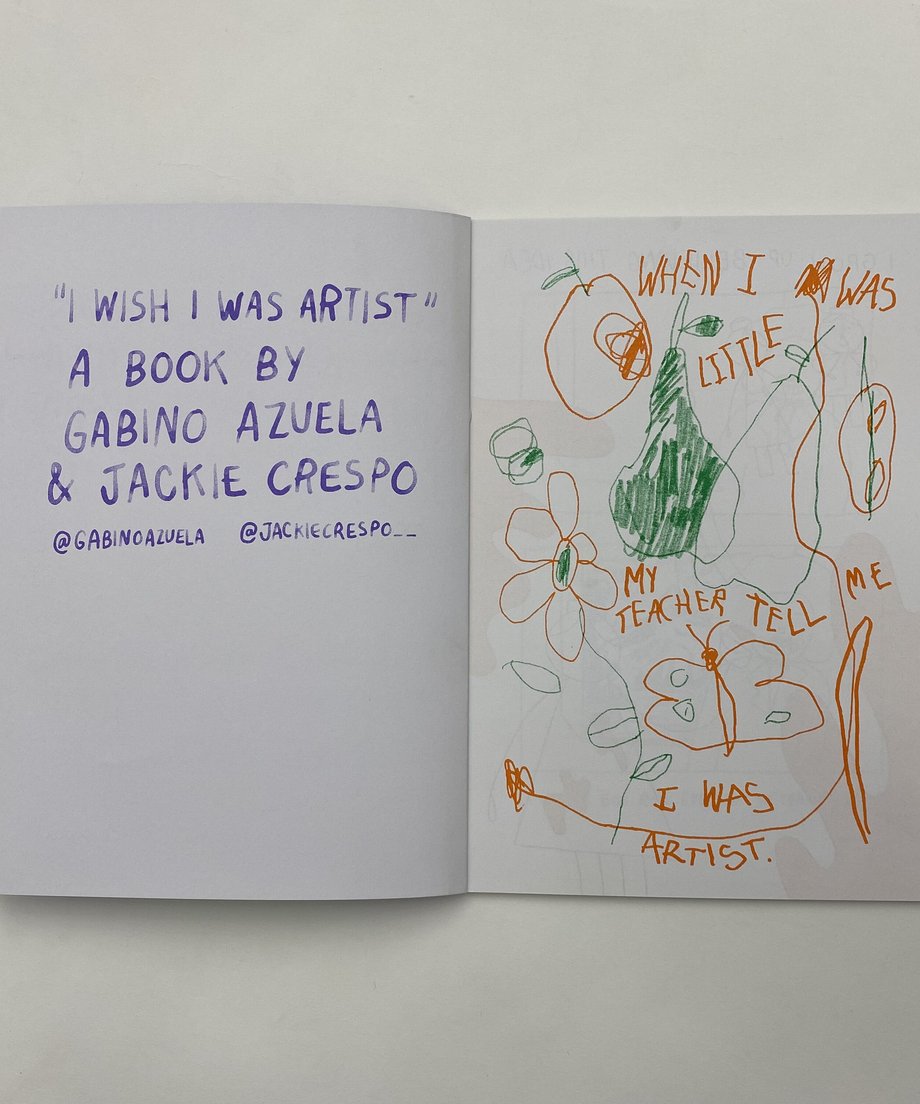 "I WISH I WAS ARTIST"
A BOOK BY
GABINO AZUELA
& JACKIE CRESPO
@GABINOAZUELA @JACKIECRESPO__
WHEN I WAS
LITTLE
MY
TEACHER TELL ME
I WAS
ARTIST.